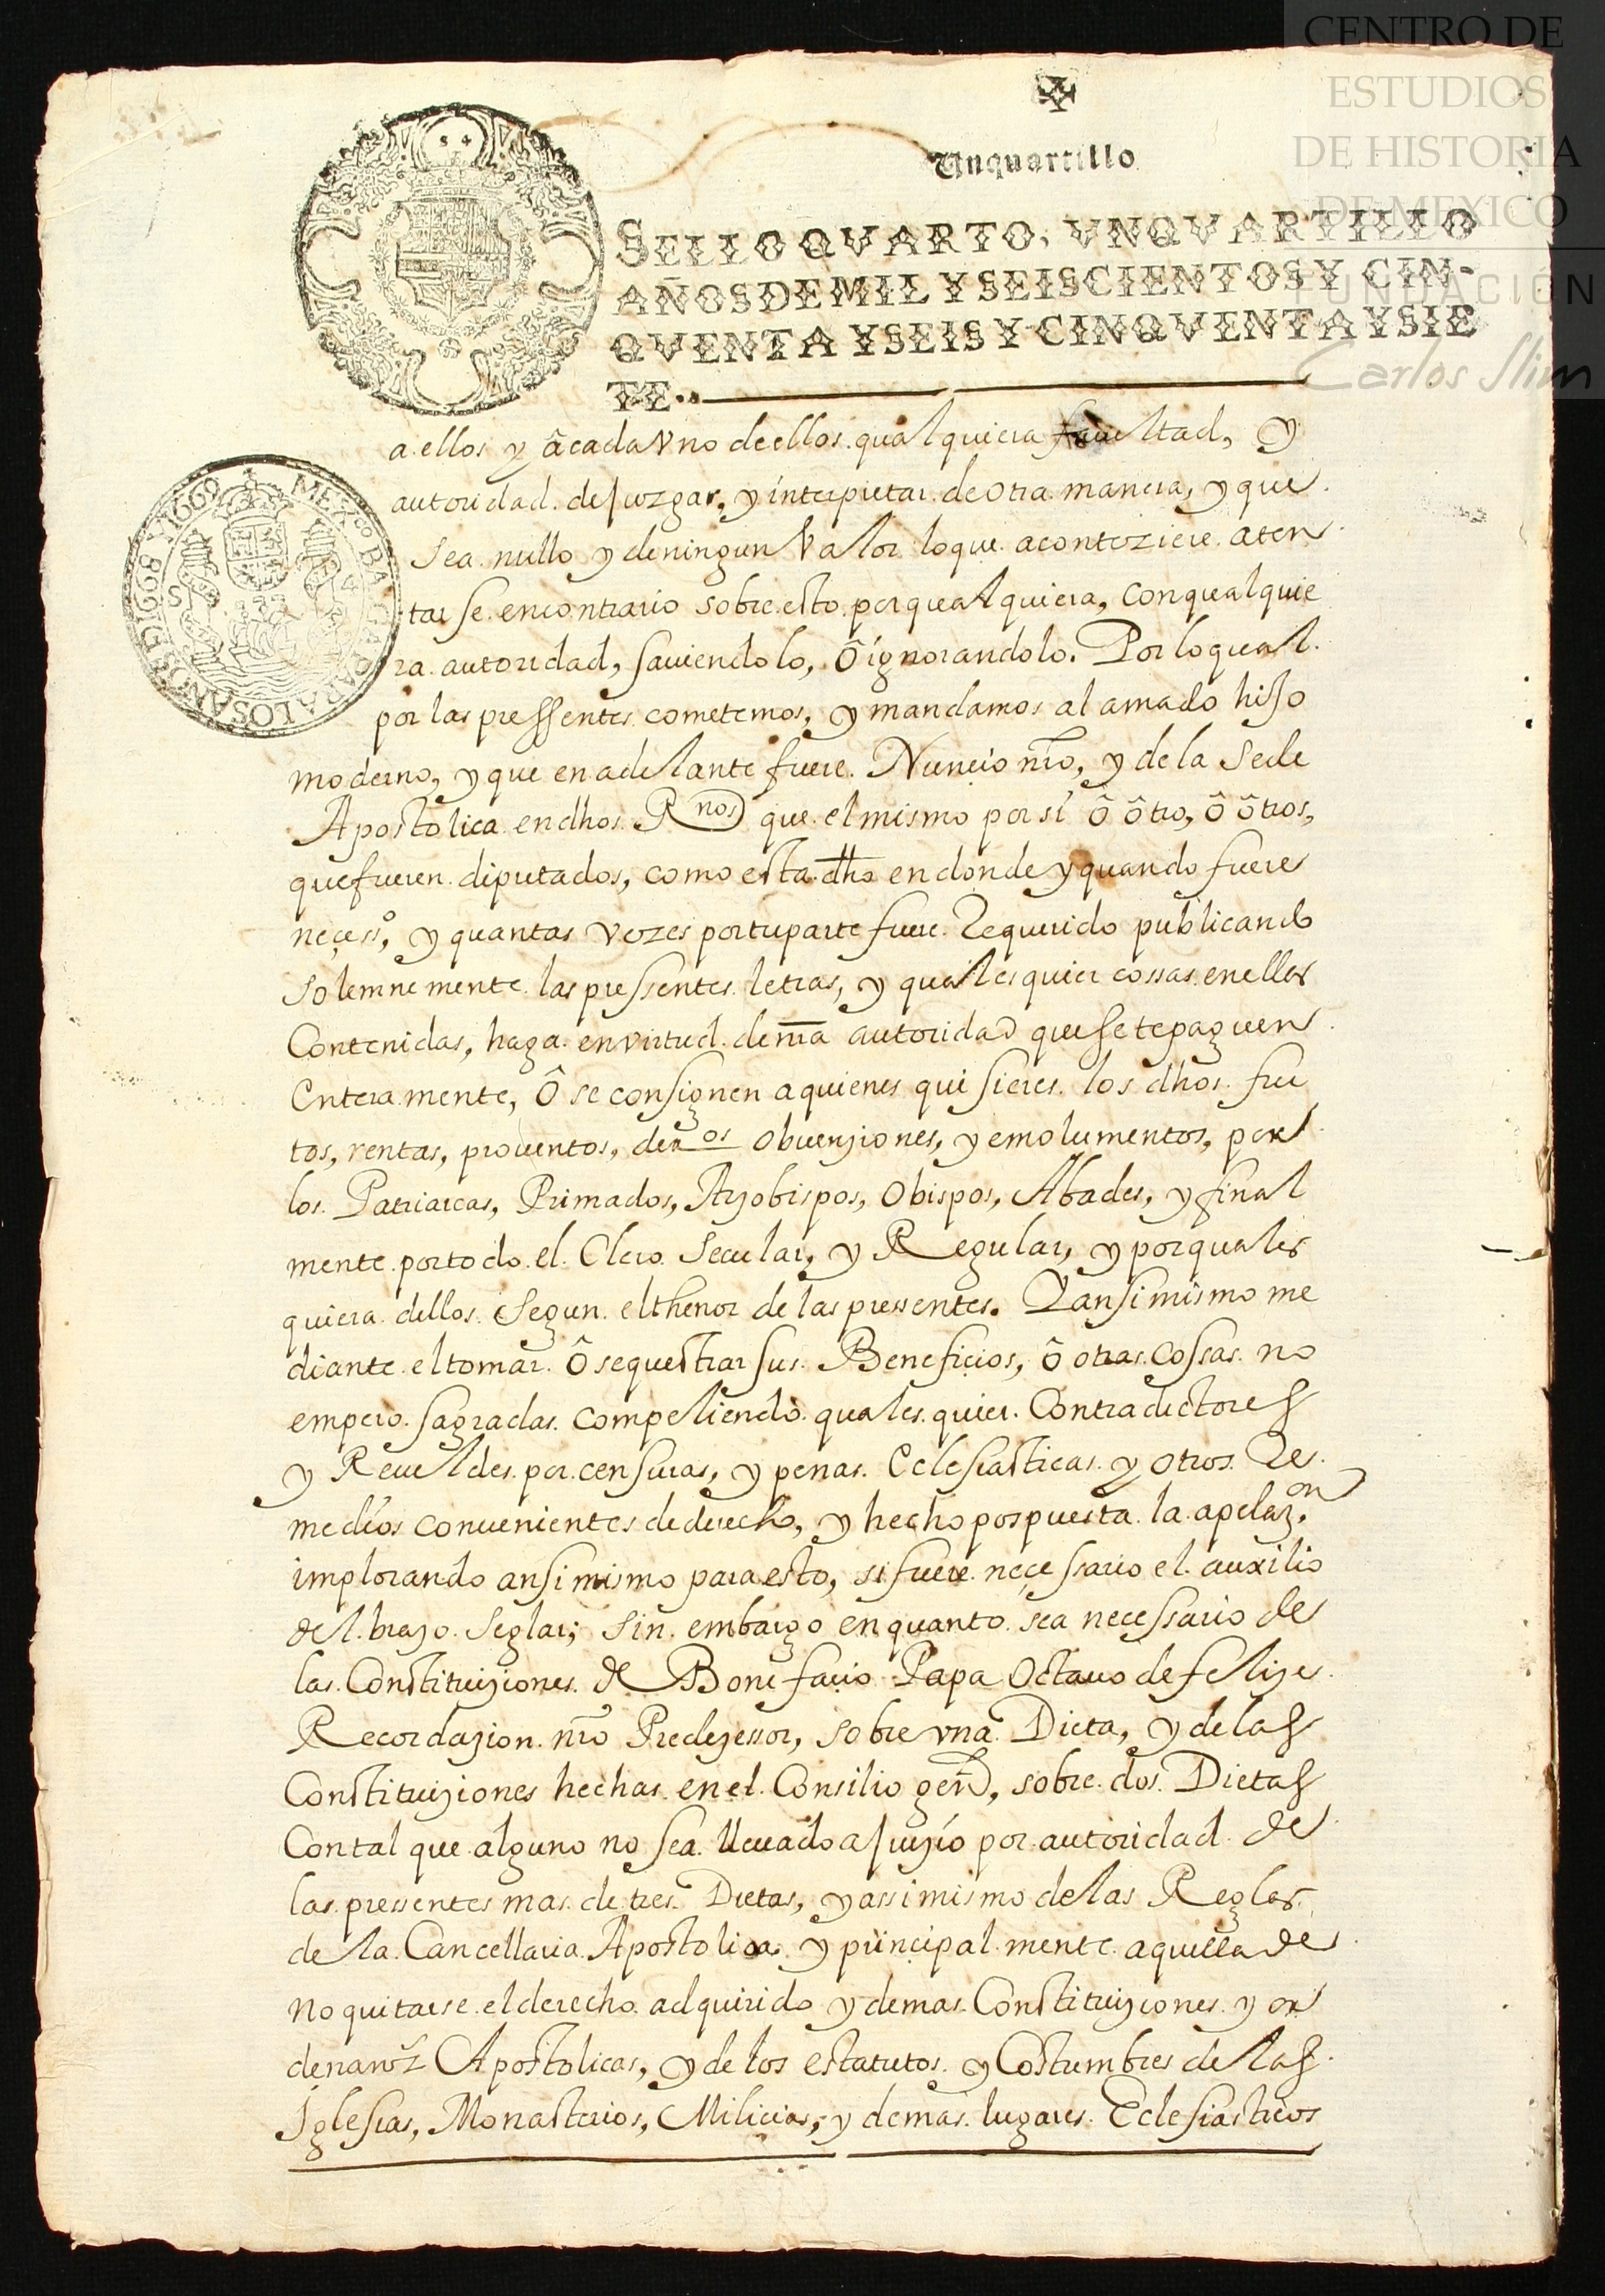 CENTRO DE
ESTUDIOS
DE HISTORIA
DE MEXICO
FUNDACIÓN
Carlos Slim
Vnquartillo
SELLO QVARTO, VNQVARTILLO
AÑOS DE MIL Y SEISCIENTOS Y CIN-
QVENTA Y SEIS Y CINQVENTA Y SIE
TE..
MEX.co BA PARA LOS AÑOS D 1668 Y 1669
a ellos y â cada Vno de ellos qualquiera facultad, y
autoridad de juzgar, y interpretar de otra manera, y que
sea nullo y de ningun Valor lo que aconteziere aten
tarse en contrario sobre esto por qualquiera, con qualquie
ra autoridad, sauiendolo, ô ignorandolo. Por lo qual
por las pressentes cometemos, y mandamos al amado hijo
moderno, y que en adelante fuere Nuncio nro, y de la Sede
Apostolica en dhos Rnos que el mismo por si ô ôtro, ô ôtros,
que fueren diputados, como esta dho en donde y quando fuere
neçesso, y quantas vezes por tu parte fuere Requerido publicando
solemnemente las pressentes letras, y quales quier cossas en ellas
Contenidas, haga en virtud de nra autoridad que se te paguen
Enteramente, ô se consignen a quienes quisieres los dhos fru
tos, rentas, prouentos, deros obuenziones, y emolumentos, por
los Patriarcas, Primados, Arzobispos, Obispos, Abades, y final
mente por todo el Clero Secular, y Regular, y por quales
quiera dellos segun el thenor de las pressentes. Y ansimismo me
diante el tomar ô sequestrar sus Beneficios, ô otras cossas no
empero sagradas compeliendo quales quier Contradictores
y Reueldes por censuras, y penas Eclesiasticas y otros Re
medios conuenientes de derecho, y hecho pospuesta la apelazon.
implorando ansimismo para esto, si fuere neçessario el auxilio
del brazo seglar; sin embargo en quanto sea necessario de
las Constituiziones de Bonifacio Papa Octauo de felize
Recordazion nro Predezessor, sobre vna Dieta, y de las
Constituiziones hechas en el Consilio genl, sobre dos Dietas
Con tal que alguno no sea lleuado a juizio por autoridad de
las pressentes mas de tres Dietas, y assimismo de las Reglas
de la Cancellaria Apostolica y principalmente aquella de
no quitarse el derecho adquirido y demas Constituiziones y or
denanzs Apostolicas, y de los estatutos y Costumbres de las
Iglesias, Monasterios, Milicias, y demas lugares Eclesiasticos